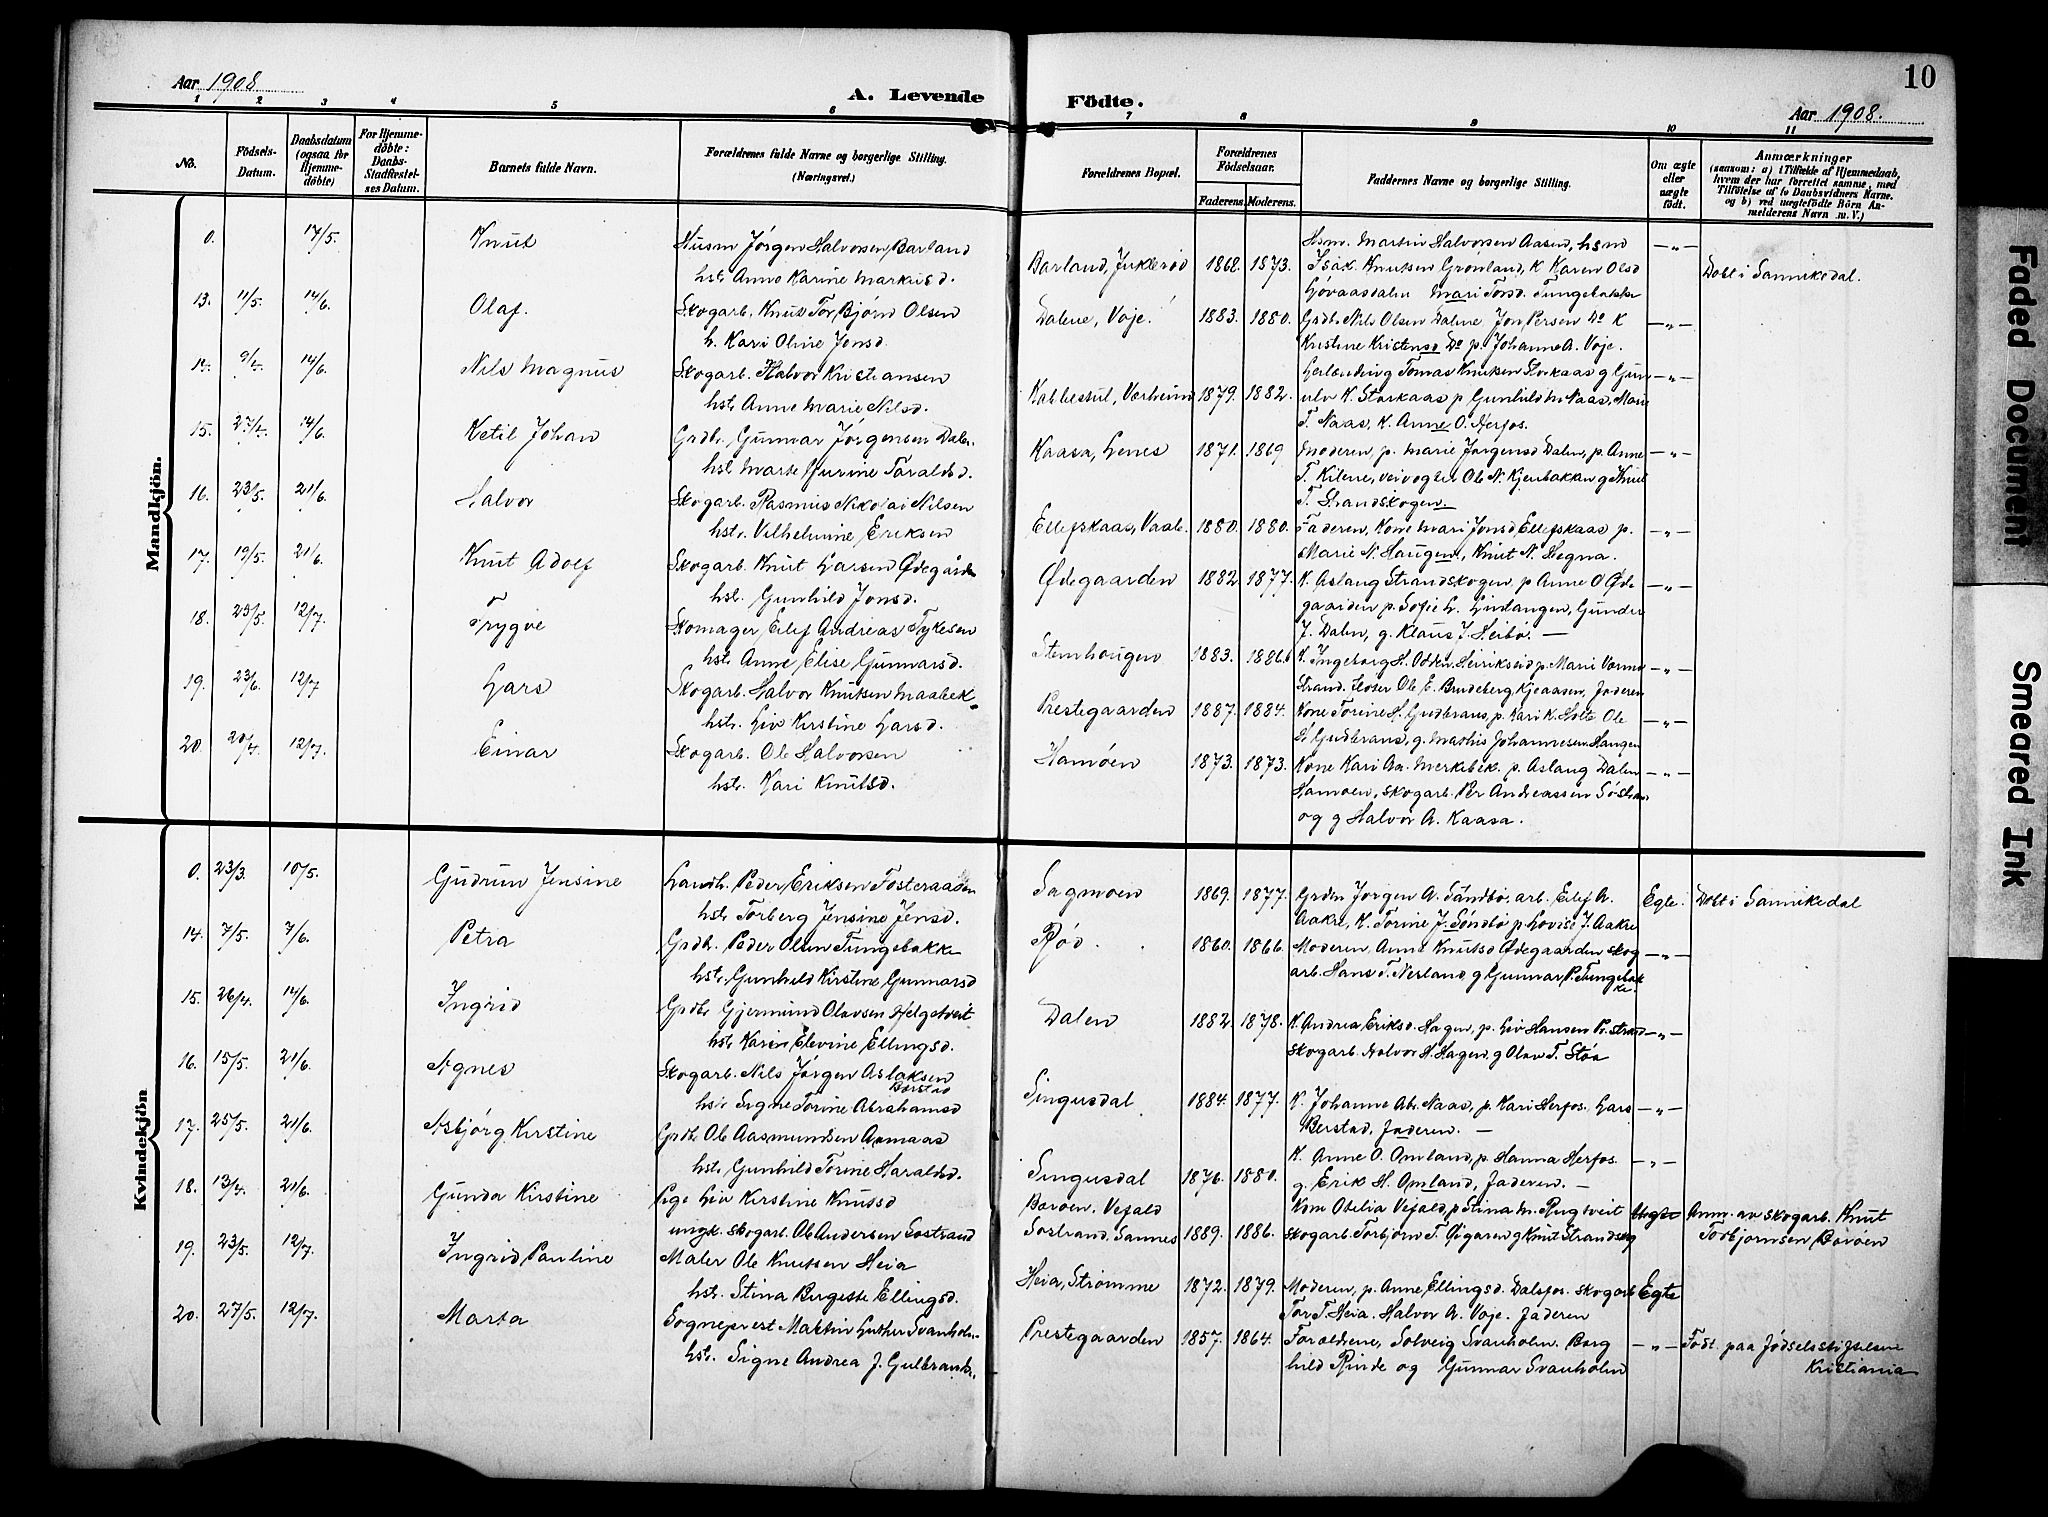 Aar 1908
A. Levende Födte.
Aar 1908.
10
1 2 3 4 5 6 7 8 9 10 11
No.
Födsels-Datum.
Daabsdatum (ogsaa for Hjemmedöbte)
For Hjemmedöbte: Daabs-Stadfæstelses Datum.
Barnets fulde Navn.
Forældrenes fulde Navne og borgerlige Stilling. (Næringsvei.)
Forældrenes Bopæl.
Forældrenes Födselsaar.
Faderens. Moderens.
Faddernes Navne og borgerlige Stilling.
Om ægte eller uægte födt.
Anmærkninger
(saasom: a) i Tilfælde af Hjemmedaab, hvem der har forrettet samme, med Tilföielse af to Daabsvidners Navne. og b) ved uægtefödte Börn Anmelderens Navn m. V.)
Mandkjön.
0. 17/5. Knut
Husm Jørgen Halvorsen Barland
hstr Anne Karine Markusd.
Barland, Juklerød 1868. 1873.
Hsm. Martin Halvorsen Aasen, hsm
Isak Knutsen Grønland, K Karen Olsd
Løvaasdalen Mari Torsd. Tungebakke
—„— Døbt i Sannikedal.
13. 11/5. 14/6. Olaf.
Skogarb. Knut Torbjørn Olsen
h. Kari Oline Jonsd.
Dalene, Voje. 1883. 1880.
Grdb. Nils Olsen Dalene Jon Persen Do K
Kristine Kristensd Do p. Johanne A. Voje.
—„—
14. 9/4. 14/6. Nils Magnus
Skogarb. Halvor Kristiansen
hstr Anne Marie Nilsd.
1879. 1882.
Tomas Knutsen Storkaas g Gun
ulv K. Storkaas p Gunhild M Naas, Marie
T. Naas, K. Anne O. Herfos.
—„—
15. 27/4. 14/6. Ketil Johan
Grdbr. Gunnar Jørgensen Dalen
hst Marte Jurine Taraldsd.
Kaasa, Lenes 1871. 1869
Moderen, p. Marie Jørgensd Dalen, p. Anne
T. Kilene, veivogter Ole N. Kjenbakken g Knut
T. Strandskogen.
—„—
16. 23/5. 21/6. Halvor
Skogarb. Rasmus Nikolai Nilsen
hstr. Vilhelmine Eriksen
Ellefskaas, Vaab. 1880. 1880.
Faderen, Kone Mari Jonsd Ellefskaas p.
Marie N. Haugen, Knut N. Hegna.
—„—
17. 19/5. 21/6. Knut Adolf
Skogarb. Knut Larsen Ødegården
hst. Gunhild Jonsd.
Ødegaarden 1882 1877.
K. Aslaug Strandskogen p Anne O Øde
gaarden p. Sofie L. Lindangen, Gunder
J. Dalen, g. Klaus J. Heibø. —
—„—
18. 29/5. 12/7. Trygve
Skomager Eilef Andreas Tykesen
hstr Anne Elise Gunnarsd.
Stemhougen 1883. 1886.
K. Ingeborg H. Odden, Heirikseid p. Mari Vorme
strand. Ole E. Brudeberg, Kjeaasen, Faderen
—„—
19. 23/6. 12/7 Lars
Skogarb. Halvor Knutsen Maabek
hstr. Liv Kirstine Larsd.
Prestegaarden 1887. 1884.
Kone Torine H. Gudbrans, p. Kari K. Holte Ole
L. Gudbrans, g. Mathis Johannesen Haugen
—„—
20. 20/4. 12/7. Einar
Skogarb. Ole Halvorsen
hstr. Kari Knutsd.
Hamøen 1873. 1873.
Kone Kari Aa. Merkebek. p. Aslaug Dalen
Hamøen, skogarb. Per Andreassen
og g Halvor A. Kaasa.
—„—
Kvindekjön
0. 23/3. 10/5. Gudrun Jensine
Landh. Peder Eriksen Fosteraasen
hstr Torberg Jensine Jensd.
Sagmoen 1869. 1877.
Grdm Jørgen A. Sandbø, arb. Eilef A.
Aakre, K. Torine J. Søndbø p Lovise J. Aakre
Egte. Døbt i Sannikedal
14. 7/5. 7/6. Petra
Grdb. Peder Olsen Tungebakke
hst. Gunhild Kirstine Gunnarsd
Rød. 1860. 1866.
Moderen, Anne Knutsd Ødegaarden skog
arb. Hans T. Nesland g Gunnar P. Tungebak
ke.
—„—
15. 26/4. 14/6. Ingrid
Grdb. Gjermund Olavsen Helgetveit
hstr Karen Elevine Ellingsd.
Dalen 1882 1878.
K. Andrea Eriksd. Hagen, p. Liv Hansen Pr. strand
skogarb. Halvor H. Hagen g Olav T. Støa
—„—
16. 15/5. 21/6. Agnes
Skogarb. Nils Jørgen Aslaksen
Berstad
hstr Signe Torine Abrahamsd
Singusdal 1884. 1877.
K. Johanne Abr. Naas, p. Kari Herfos. Lars
Berstad, Faderen. —
—„—
17. 25/5. 21/6. Asbjørg Kirstine
Grdb. Ole Aasmundsen Aamaas
hst. Gunhild Torine Haraldsd.
Singusdal 1876. 1880.
K. Anne O. Omland, p. Hanna Herfos.
g. Erik H. Omland, Faderen. —
—„—
18. 13/4. 21/6. Gunda Kirstine
Pige Liv Kirstine Knutsd
ungk. skogarb. Ole Andersen Sostrand
Borøen. Vefald
Sostrand, Sannes 1889. 1886.
Kom Obelia Vefald, p Stina M. Rugtveit
skogarb. Torbjørn T. Øigaren g Knut Strandskog
Uegte Anm. av skogarb. Knut
Torbjørnsen Borøen
19. 23/5. 12/7. Ingrid Pauline
Maler Ole Knutsen Heia
hstr. Stina Birgette Ellingsd.
Heia, Strømme 1872. 1879.
Moderen, p. Anne Ellingsd. Dalsfos. skogarb
Tor T Heia, Halvor A. Voje. Faderen
Egte
20. 27/5. 12/7. Marta
Sogneprest Martin Luther Svanholm
hstr. Signe Andrea J. Gulbrands.
Prestegaarden 1857. 1864.
Foreldrene, Solveig Svanholm. Borg
hild Rinde og Gunnar Svanholm
—„— Født paa Fødselsstiftelsen
Kristiania
Faded Document
Smeared Ink